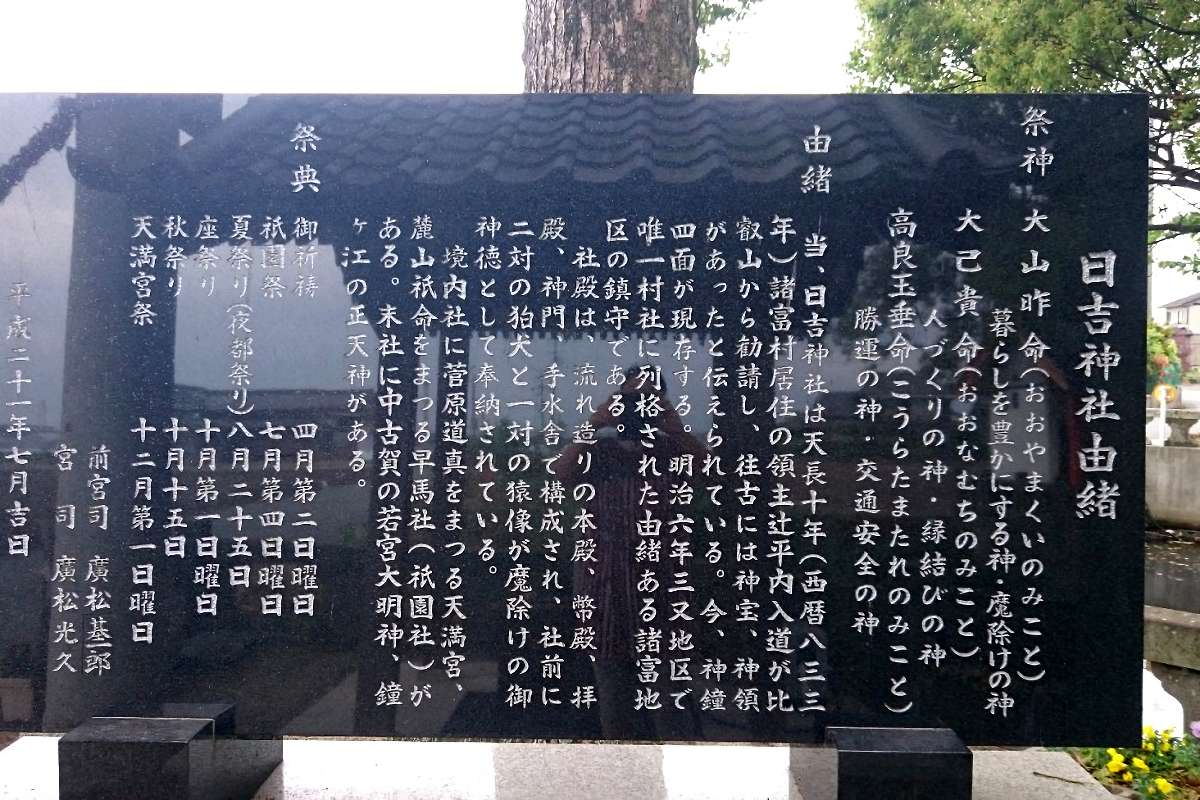 日吉神社由緒
祭神 大山昨命(おおやまくいのみこと)
暮らしを豊かにする神・魔除けの神
大己貴命(おおなむちのみこと)
人づくりの神・縁結びの神
高良玉垂命(こうらたまたれのみこと)
勝運の神・交通安全の神
由緒 当、日吉神社は天長十年(西暦八三三
年)諸富村居住の領主辻平内入道が比
叡山から勧請し、往古には神宝、神領
があったと伝えられている。今、神鐘
四面が現存する。明治六年三又地区で
唯一村社に列格された由緒ある諸富地
区の鎮守である。
社殿は、流れ造りの本殿、幣殿、拝
殿、神門、手水舎で構成され、社前に
二対の狛犬と一対の猿像が魔除けの御
神徳として奉納されている。
境内社に菅原道真をまつる天満宮、
麓山祇命をまつる早馬社(祇園社)が
ある。末社に中古賀の若宮大明神、鐘
ヶ江の正天神がある。
祭典 御祈祷 四月第二日曜日
祇園祭 七月第四日曜日
夏祭り(夜都祭り)八月二十五日
座祭り 十月第一日曜日
秋祭り 十月十五日
天満宮祭 十二月第一日曜日
前宮司 廣松基一郎
宮司 廣松光久
平成二十一年七月吉日